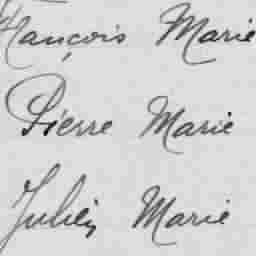 François Marie
Pierre Marie
Julien Marie